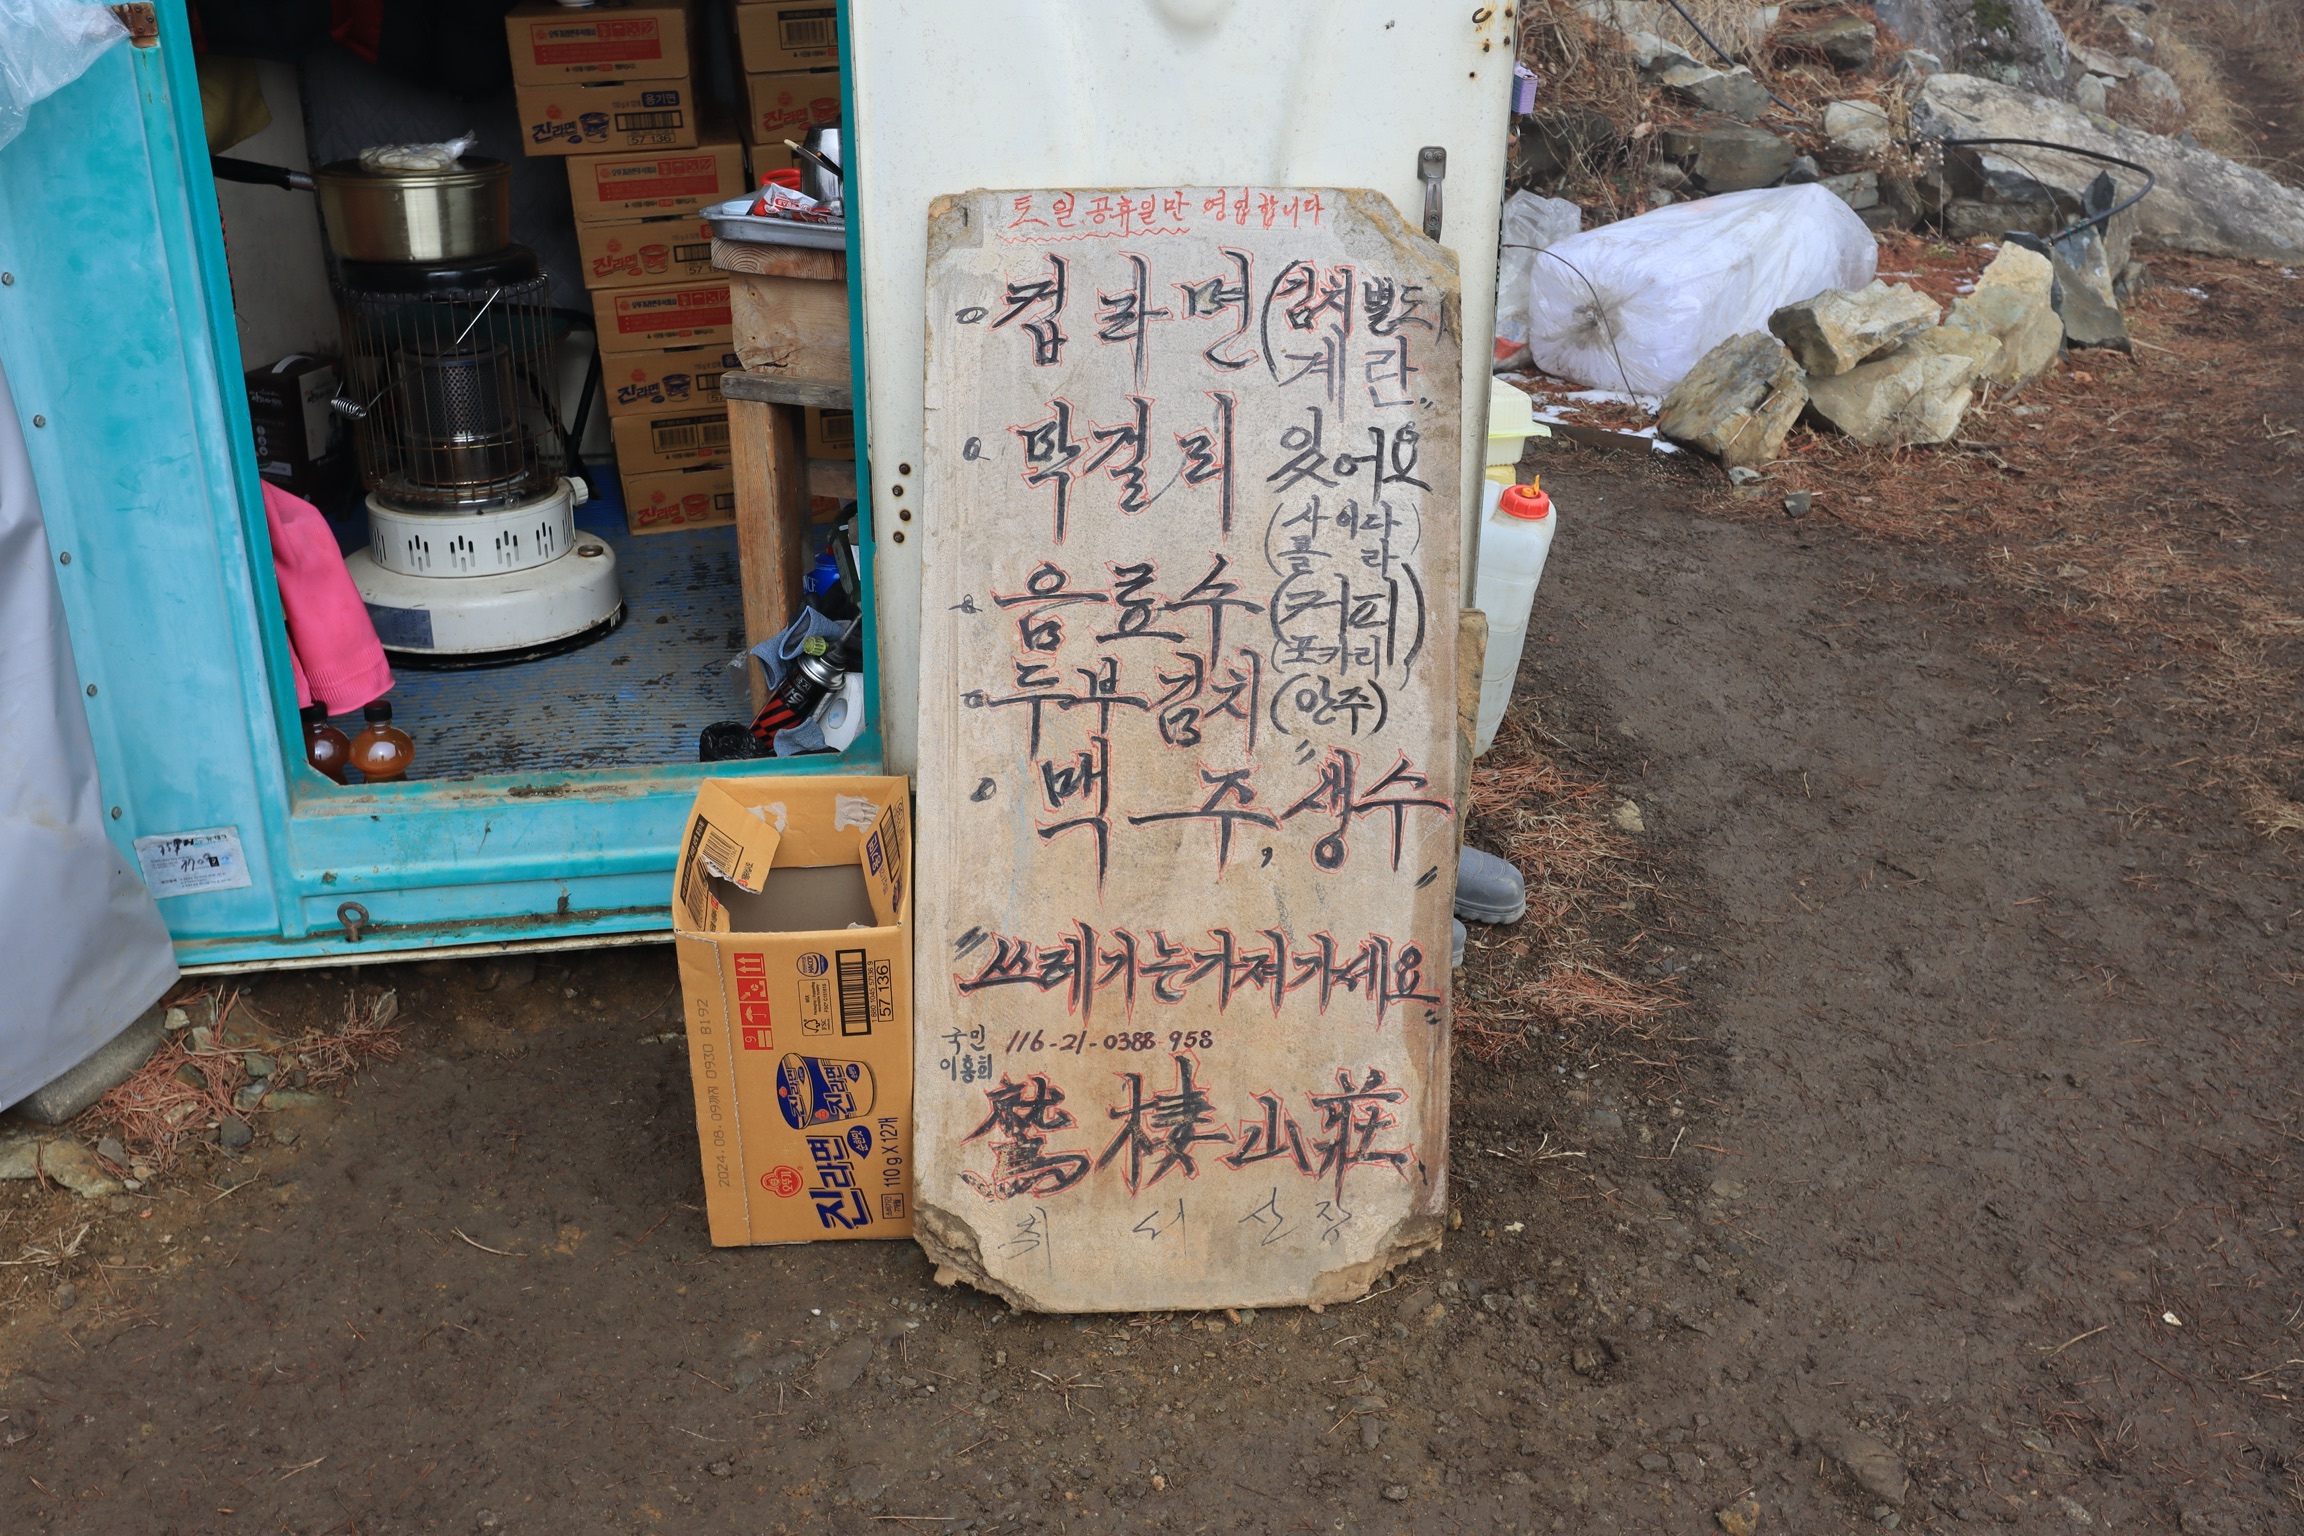 토일공휴일만 영업합니다
컵라면 (김치별도)
계란
막걸리 있어요
(사이다
콜라)
음료수 (커피)
포카리
두부김치 (안주)
맥주, 생수
"쓰레기는가져가세요"
국민 116-21-0388-958
이홍희
鷲棲山莊
취서산장
진라면
용기면
57 136
진라면
57 1
진라면
진라면
진라면
57 136
2024.08.09까지 0930 8192
진라면
진라면
오뚜기
진라면
순한맛
110 g X 12개